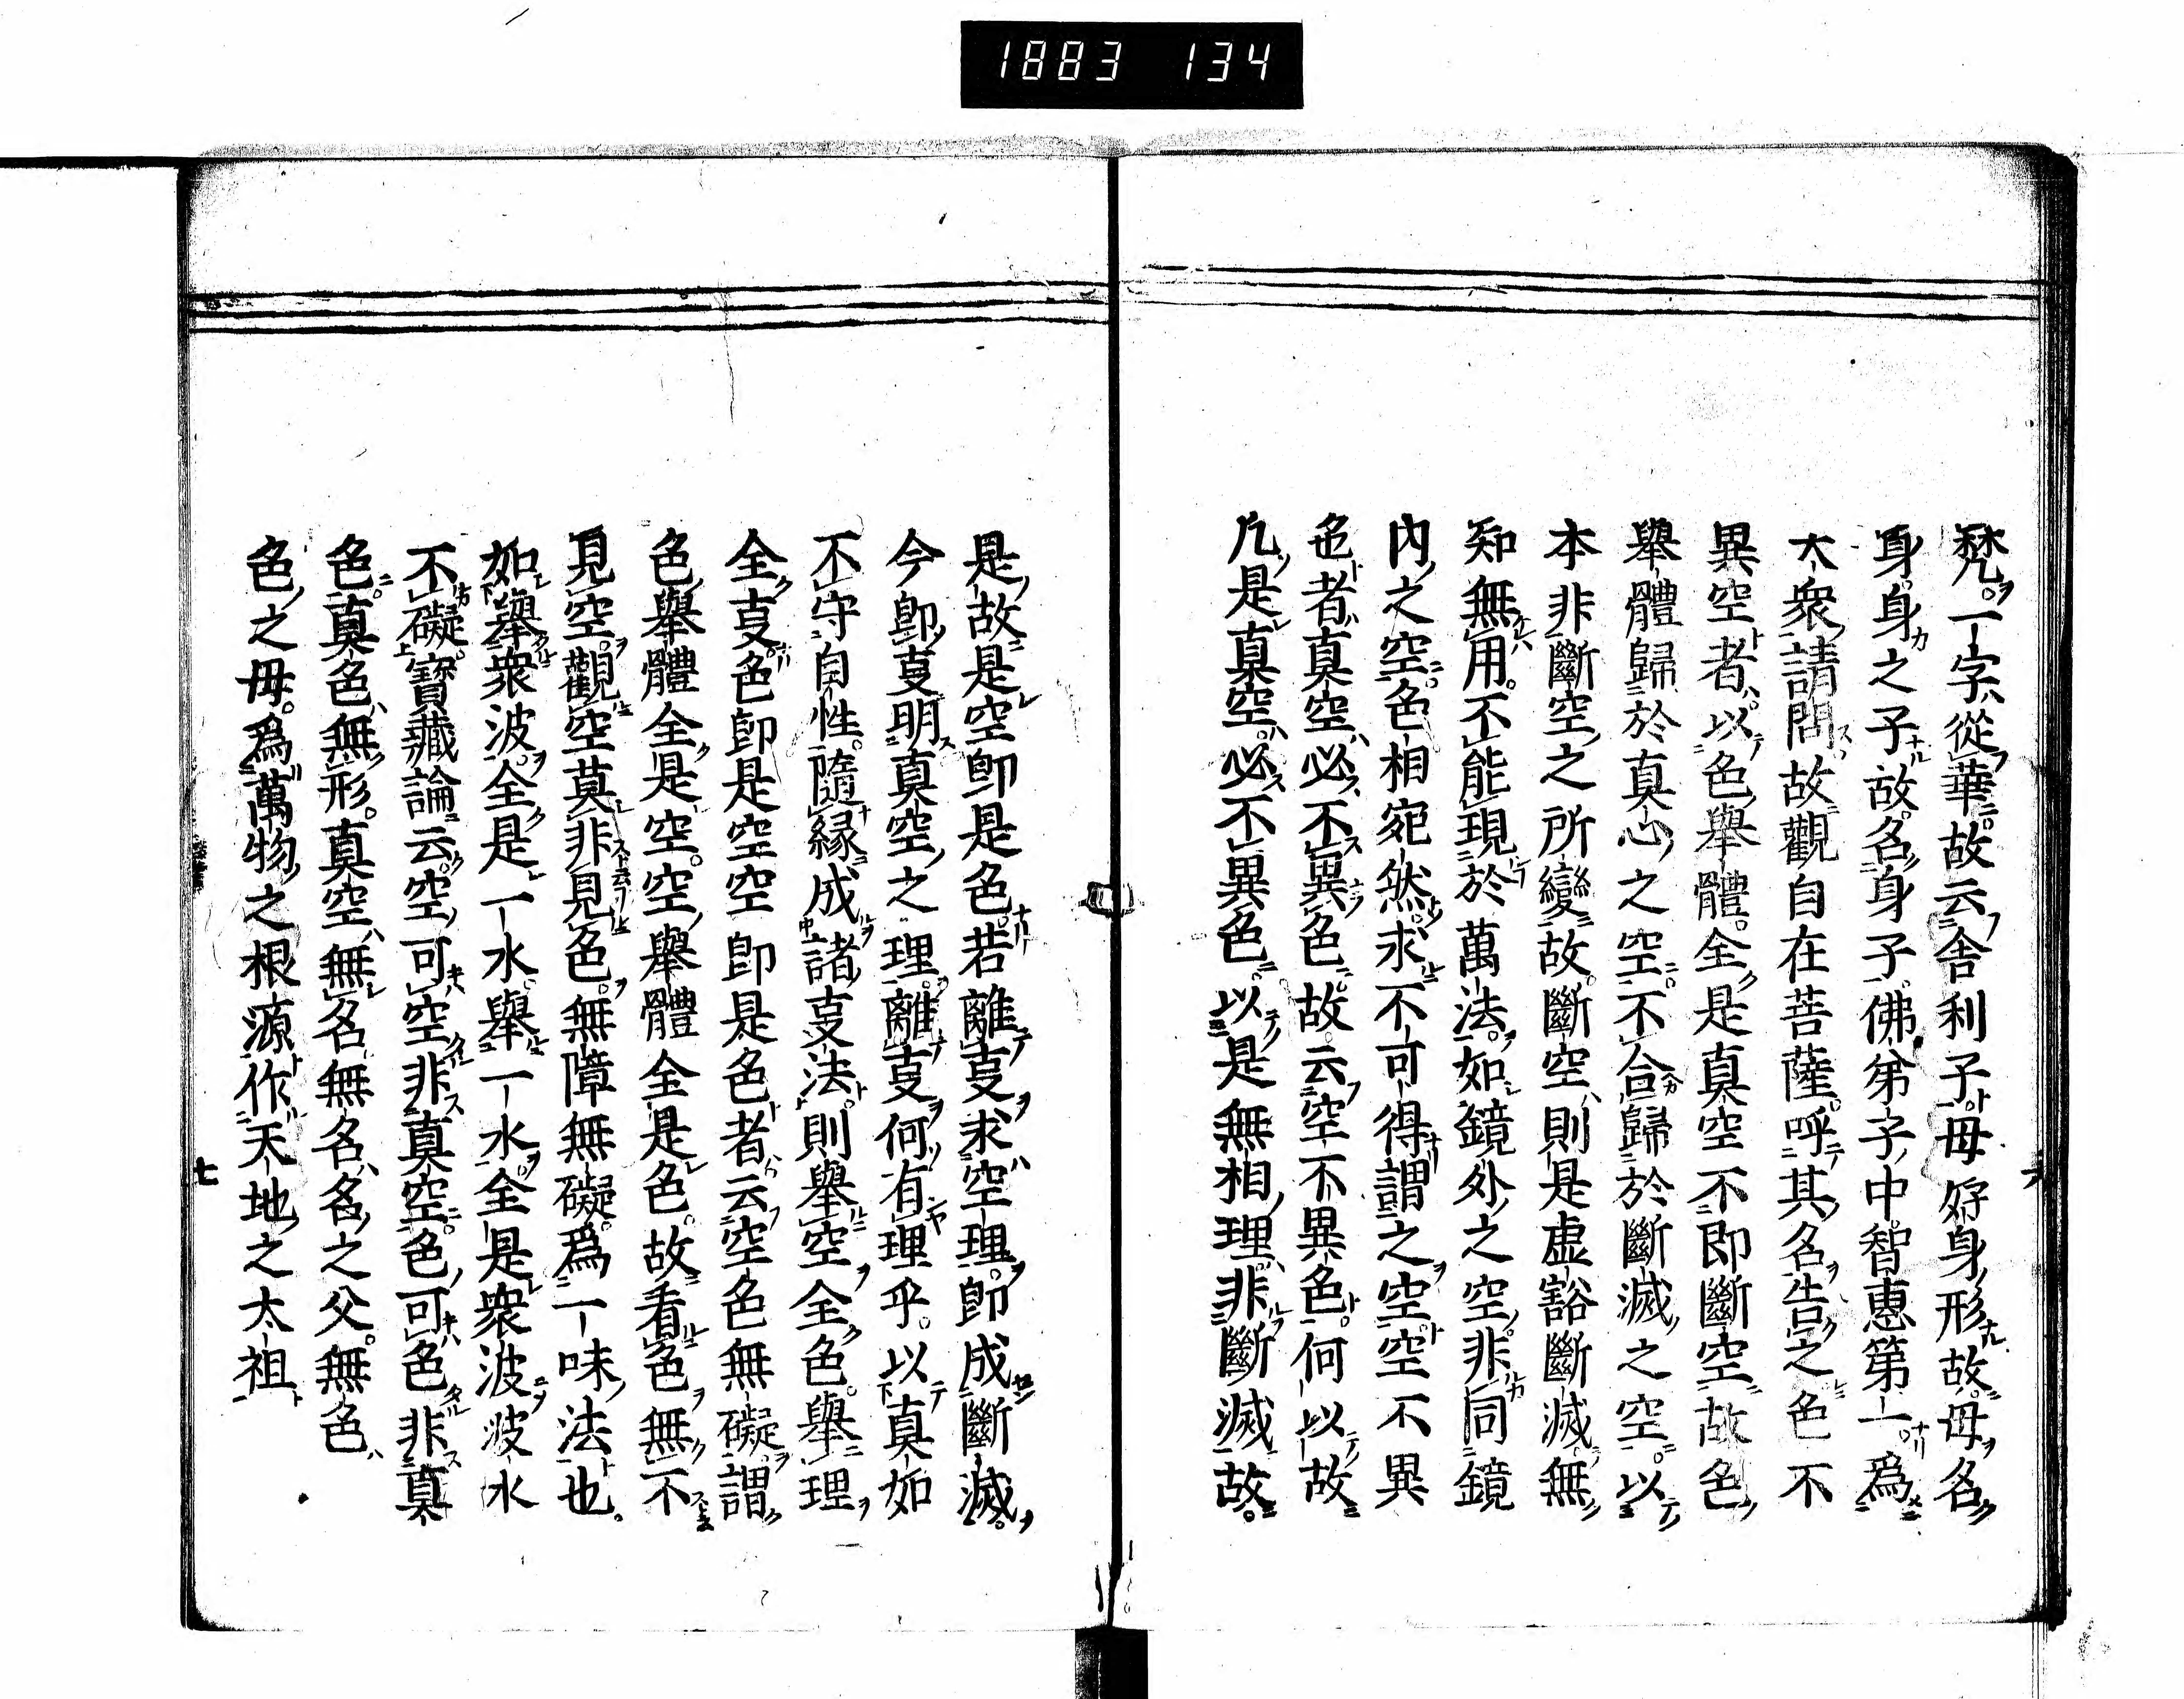 1883 134
梵一字從華故云舍利子母好身形故母名
身身之子故名身子佛弟子中智惠第一爲
大衆請問故觀自在菩薩呼其名告之色不
異空者以色舉體全是真空不即斷空故色
舉體歸於真心之空不合歸於斷滅之空以
本非斷空之所變故斷空則是虛豁斷滅無
知無用不能現於萬法如鏡外之空非同鏡
内之空色相宛然求不可得謂之空空不異
色者真空必不異色故云空不異色何以故
凡是真空必不異色以是無相理非斷滅故
六
是故是空即是色若離叓求空理即成斷滅
今即叓明真空之理離叓何有理乎以真如
不守自性隨緣成諸叓法則舉空全色舉理
全叓色即是空空即是色者云空色無礙謂
色舉體全是空空舉體全是色故看色無不
見空觀空莫非見色無障無礙爲一味法也
如舉衆波全是一水舉一水全是衆波波水
不礙寶藏論云空可空非真空色可色非真
色真色無形真空無名無名名之父無色
色之母爲萬物之根源作天地之太祖
七